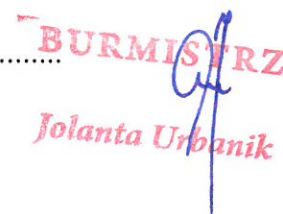 BURMISTRZ
Jolanta Urbanik